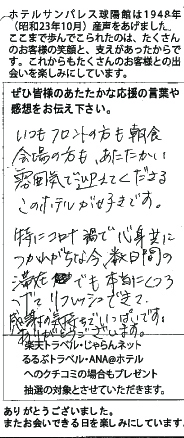 ホテルサンパレス球陽館は1948年
(昭和23年10月)産声をあげました。
ここまで歩んでこられたのは、たくさん
のお客様の笑顔と、支えがあったからで
す。これからもたくさんのお客様との出
会いを楽しみにしています。
ぜひ皆様のあたたかな応援の言葉や
感想をお伝え下さい。
いつもフロントの方も朝食
会場の方も、あたたかい
雰囲気で迎えてくださる
このホテルが好きです。
特にコロナ禍で心身共に
つかれがちな今、数日間の
滞在でも本当にくつろ
いでリフレッシュできて
感謝の気持ちでいっぱいです。
ありがとうございます。
楽天トラベル・じゃらんネット
るるぶトラベル・ANA@ホテル
へのクチコミの場合もプレゼント
抽選の対象とさせていただきます。
ありがとうございました。
またお会いできる日を楽しみにしています